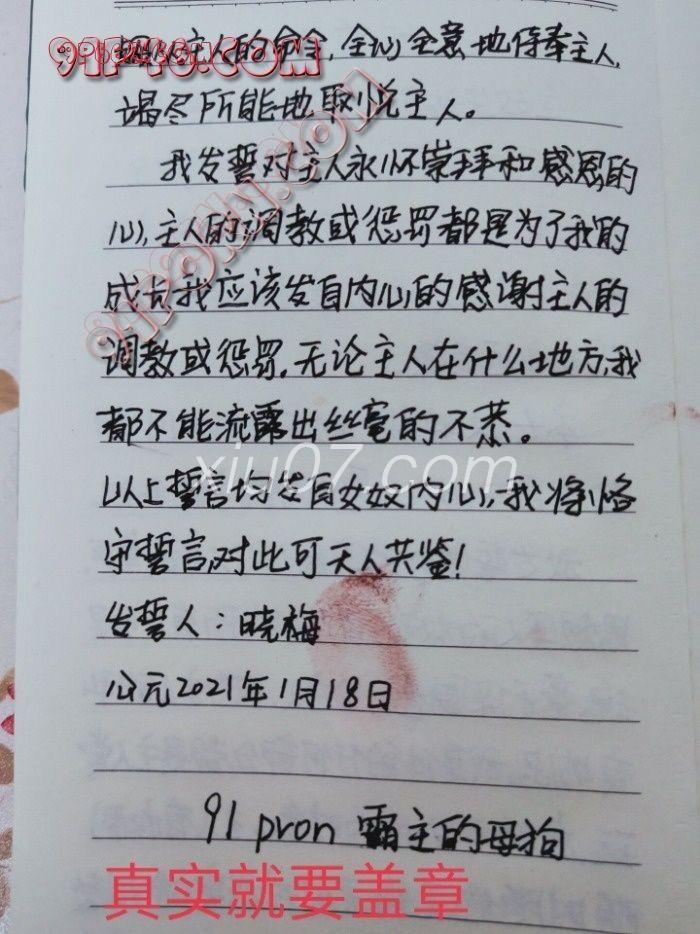 主人的命令,全心全意地侍奉主人,
91P48.COM
竭尽所能地取悦主人。
我发誓对主人永怀崇拜和感恩的
心,主人的调教或惩罚都是为了我的
成长我应该发自内心的感谢主人的
调教或惩罚。无论主人在什么地方,我
都不能流露出丝毫的不恭。
xiu07.com
以上誓言均发自女奴内心,我将恪
守誓言,对此可天人共鉴!
发誓人:晓梅
公元2021年1月18日
91 pron 霸主的母狗
真实就要盖章